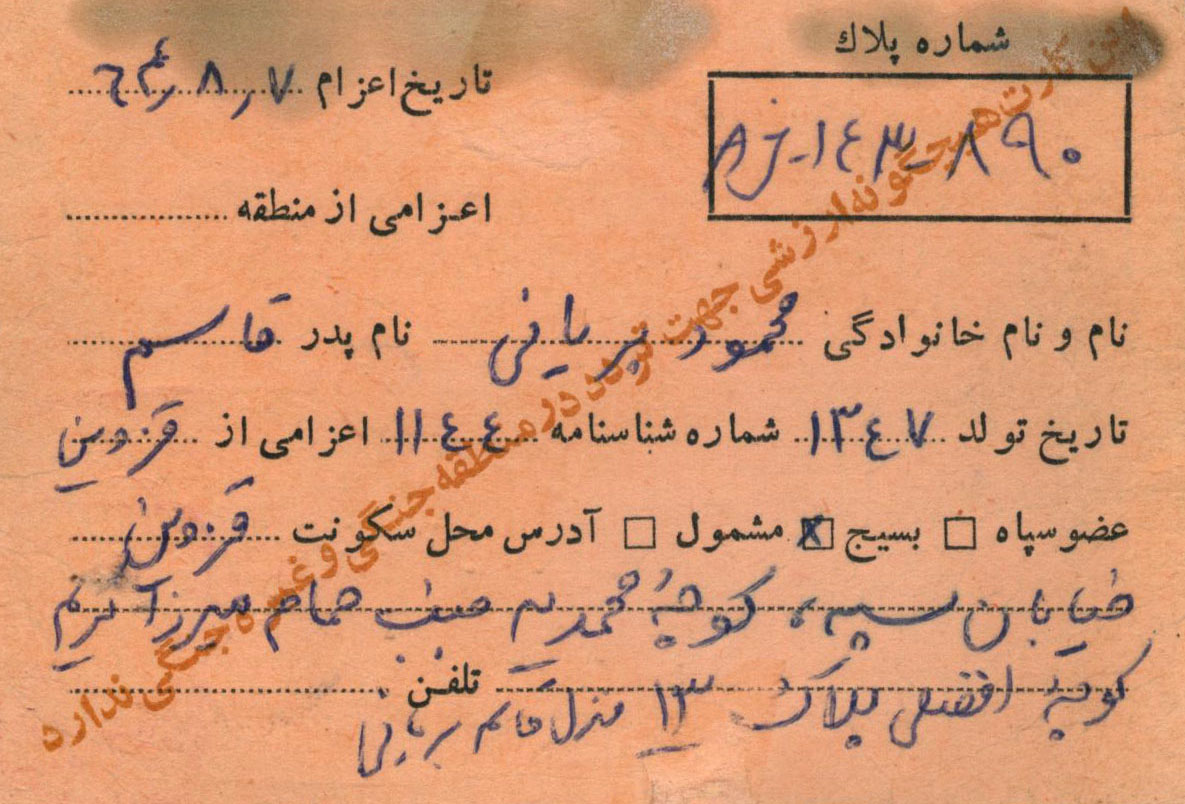 شماره پلاك
AJ-١٤٣-٨٩٠
تاریخ اعزام ٦٤ر٨ر٧
اعزامی از منطقه
نام و نام خانوادگی محمود بریانی نام پدر قاسم
تاریخ تولد ١٣٤٧ شماره شناسنامه ١١٤٤ اعزامی از قزوین
عضو سپاه □ بسیج ☒ مشمول □ آدرس محل سکونت قزوین
خیابان سپه، کوچهٔ محمدیه جنب حمام میرزا کریم
کوچهٔ افضلی پلاک ١٣ منزل قاسم بریانی تلفن
این کارت هیچگونه ارزشی جهت تردد در منطقه جنگی و غیر جنگی ندارد